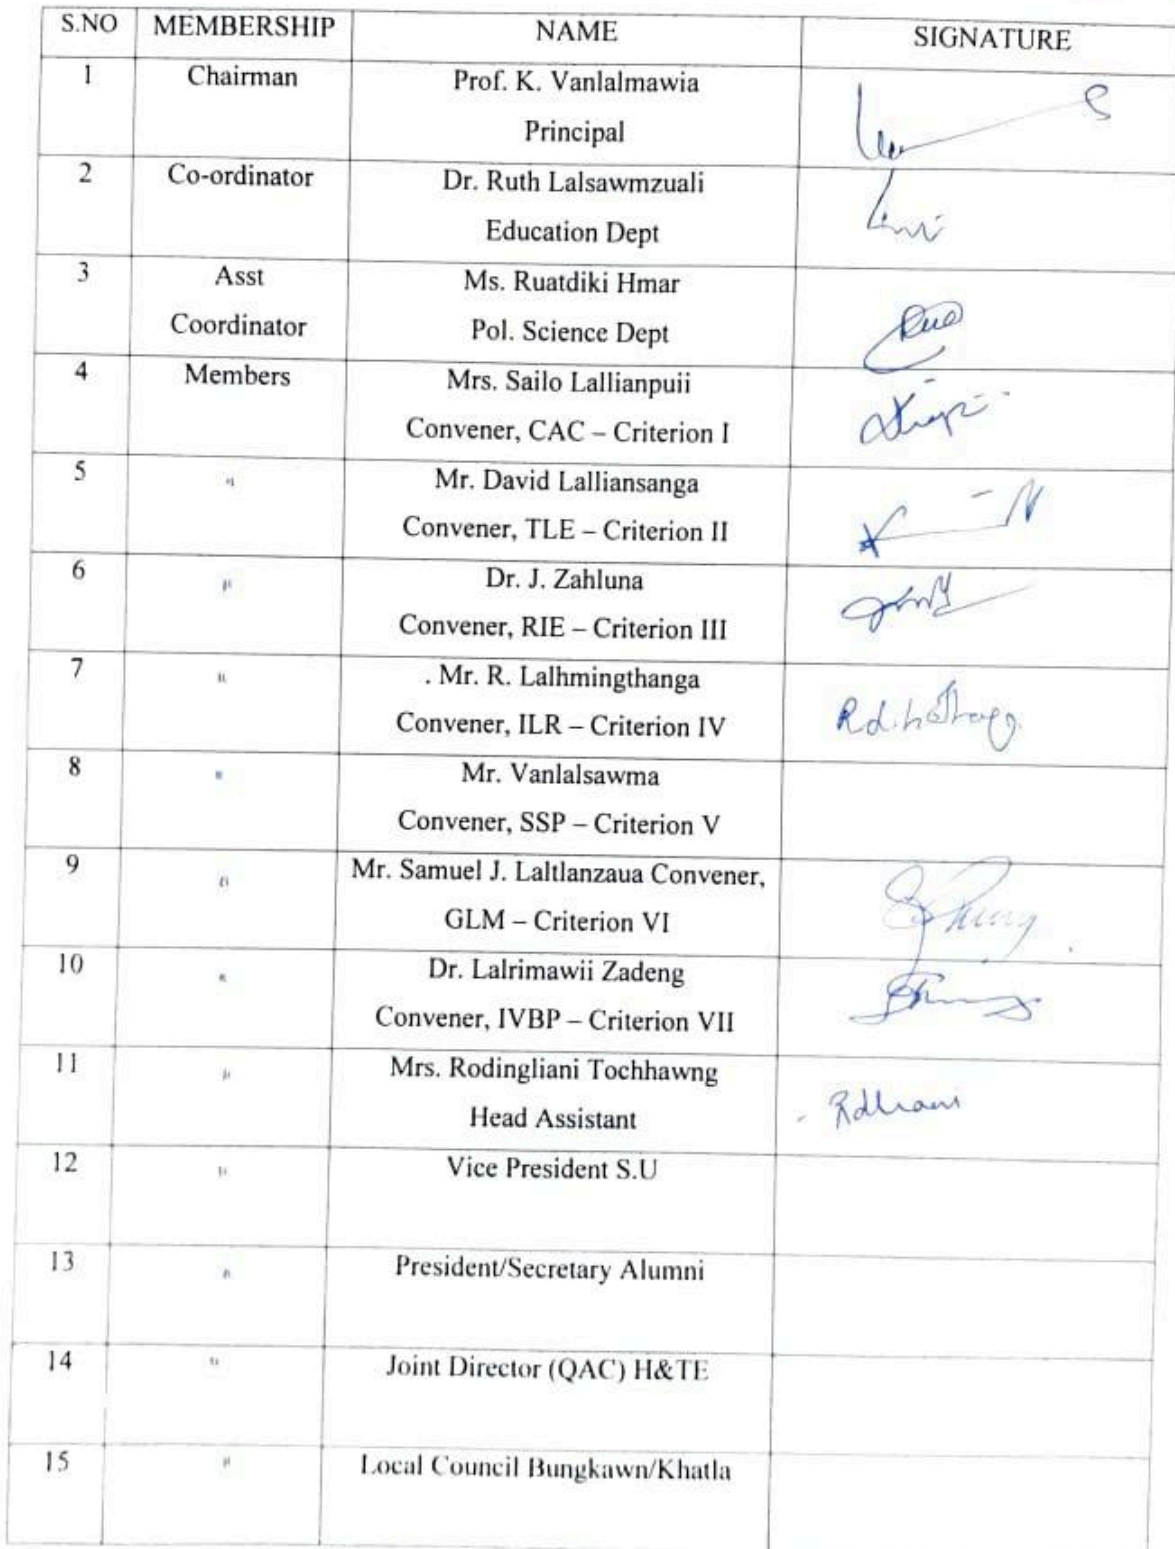 S.NO MEMBERSHIP NAME SIGNATURE
1 Chairman Prof. K. Vanlalmawia
Principal
2 Co-ordinator Dr. Ruth Lalsawmzuali
Education Dept
3 Asst Ms. Ruatdiki Hmar
Coordinator Pol. Science Dept
4 Members Mrs. Sailo Lallianpuii
Convener, CAC – Criterion I
5 " Mr. David Lalliansanga
Convener, TLE – Criterion II
6 " Dr. J. Zahluna
Convener, RIE – Criterion III
7 " . Mr. R. Lalhmingthanga
Convener, ILR – Criterion IV
8 " Mr. Vanlalsawma
Convener, SSP – Criterion V
9 " Mr. Samuel J. Laltlanzaua Convener,
GLM – Criterion VI
10 " Dr. Lalrimawii Zadeng
Convener, IVBP – Criterion VII
11 " Mrs. Rodingliani Tochhawng
Head Assistant
12 " Vice President S.U
13 " President/Secretary Alumni
14 " Joint Director (QAC) H&TE
15 " Local Council Bungkawn/Khatla